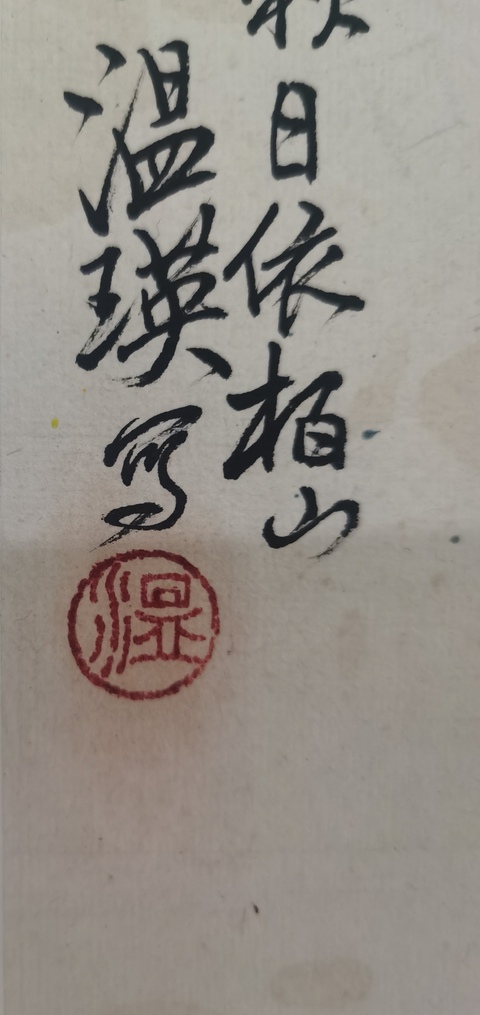 秋日依柏山
温瑛写
温